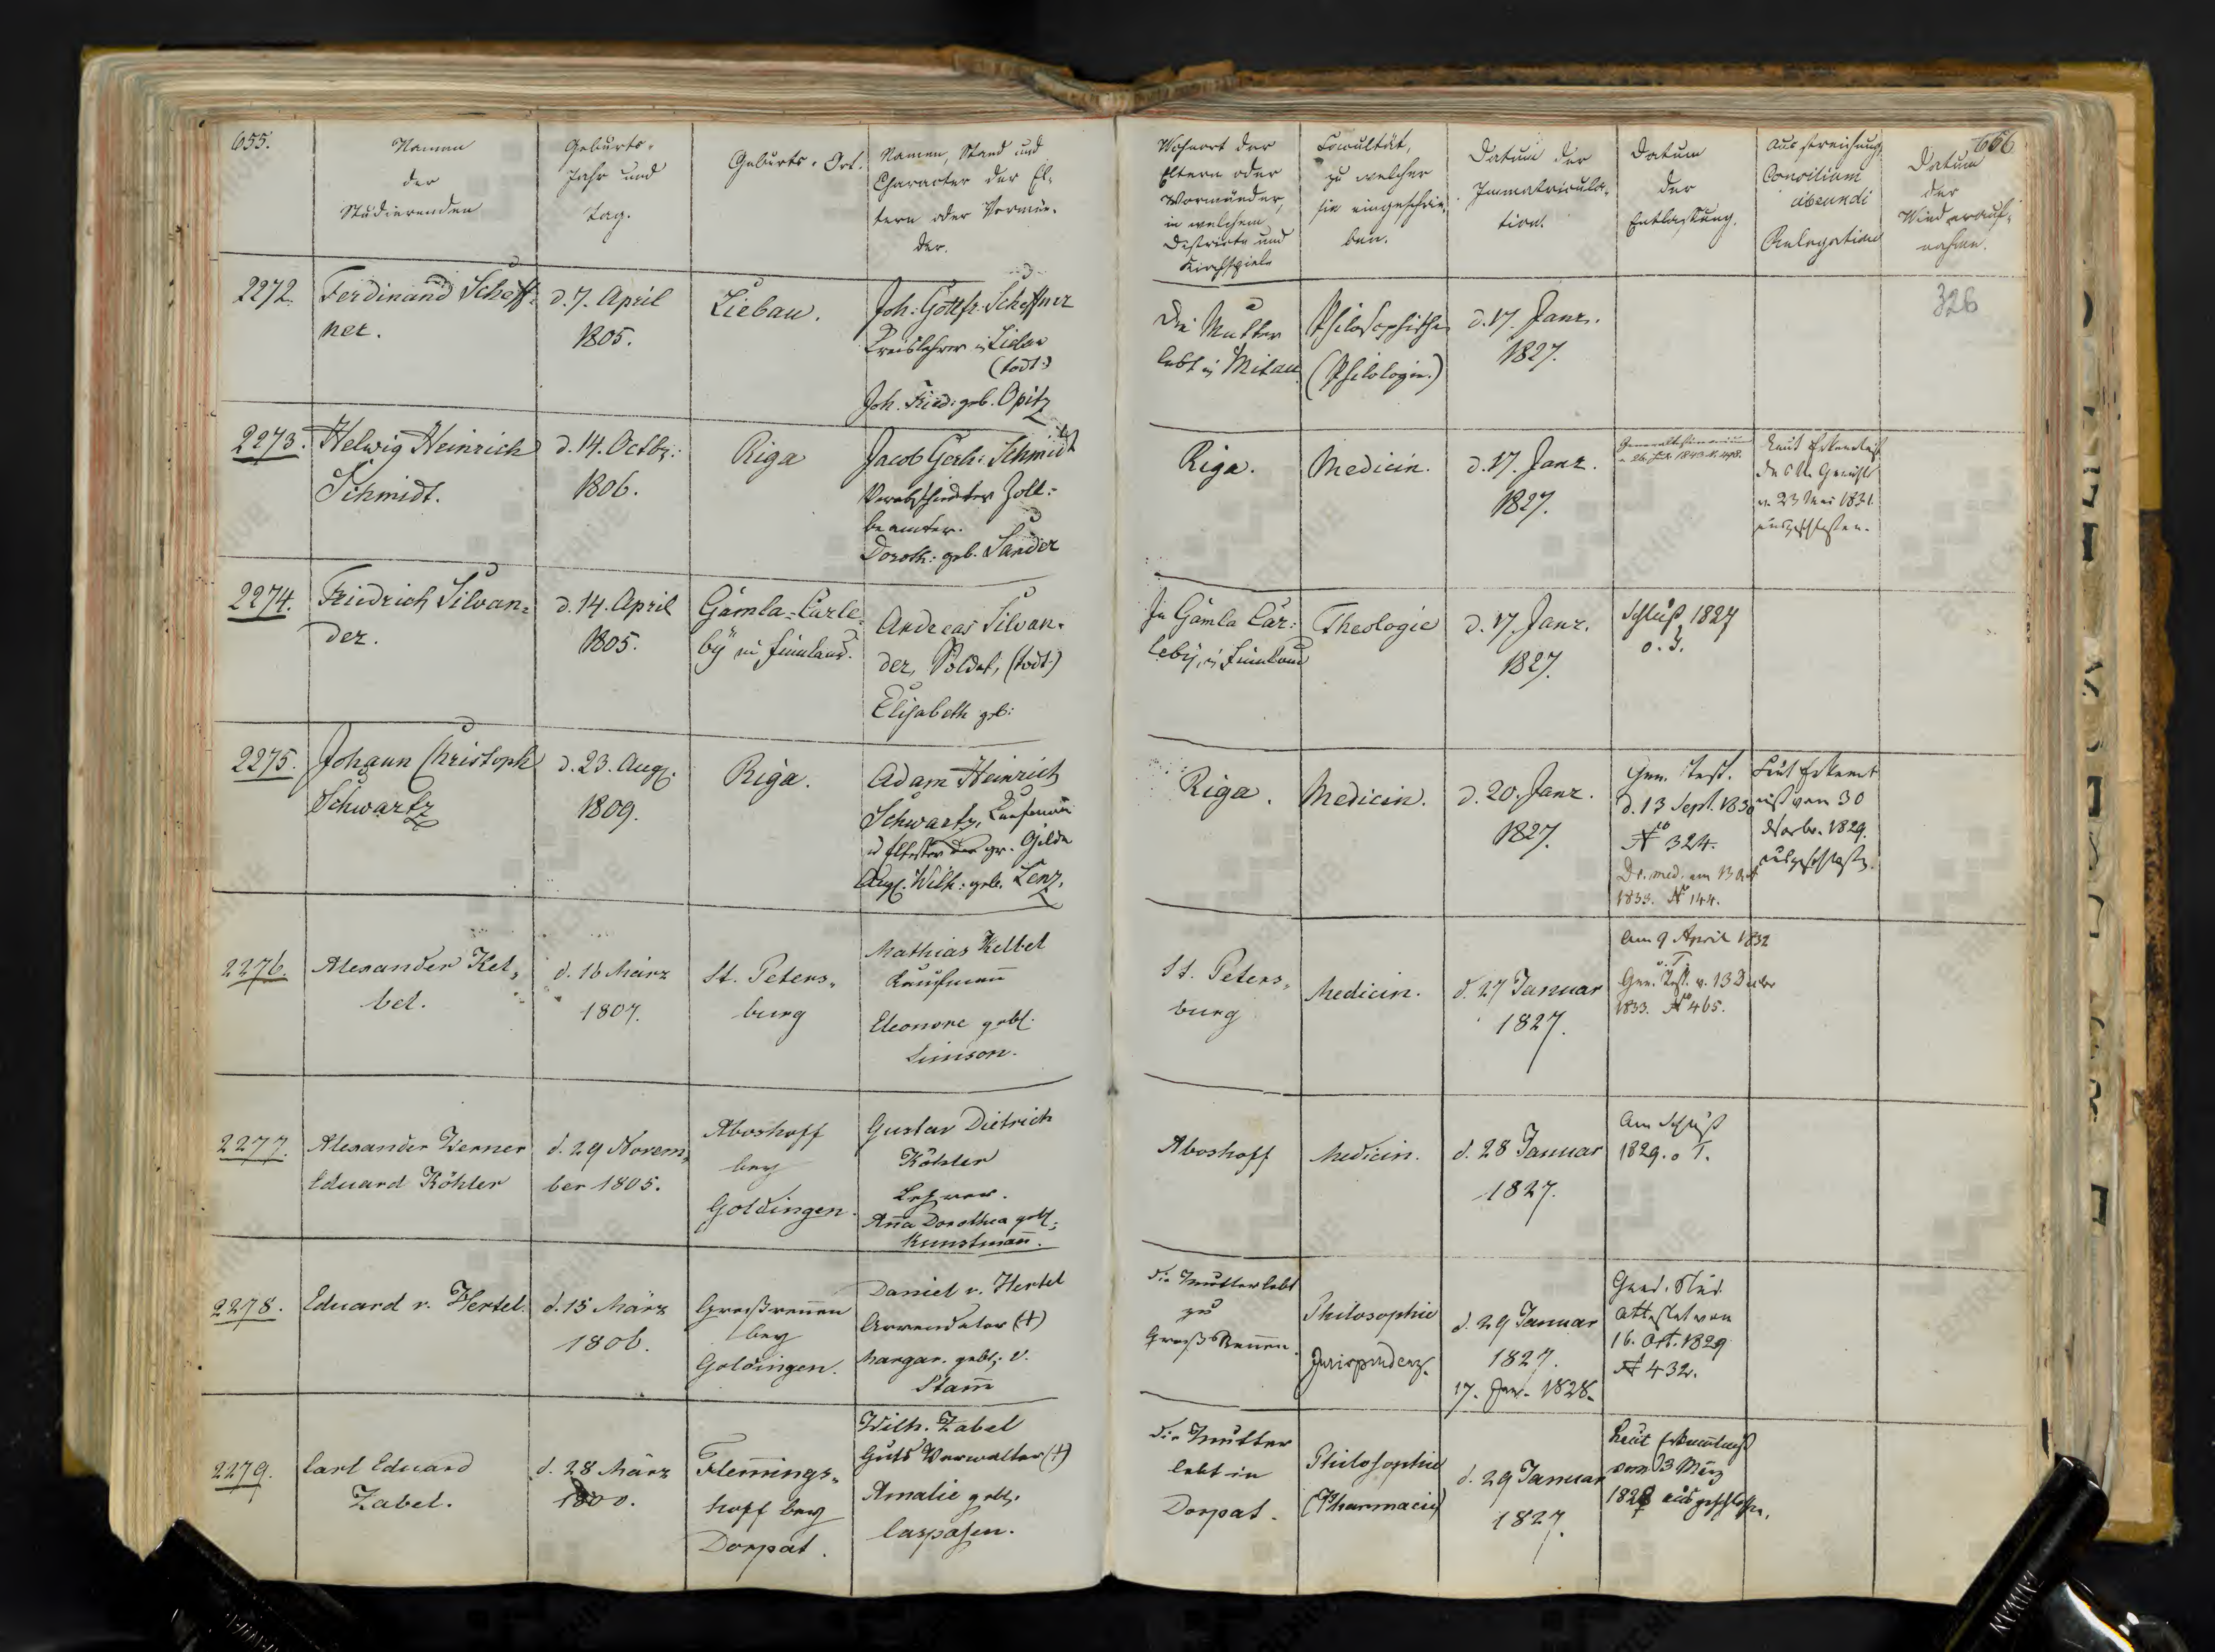 655.
Namen
der
Studierenden
Geburts-
Jahr und
Tag.
Geburts-Ort.
Namen, Stand und
Character der El-
tern oder Vormün-
der.
Wohnort der
Eltern oder
Vormünder,
in welchem
Districte und
Kirchspiele
Facultät,
zu welcher
sie eingeschrie-
ben.
Datum der
Immatricula-
tion.
Datum
der
Entlassung.
Ausstreichung
Consilium
abeundi
Relegation
656
Datum
der
Wiederauf-
nahme.
326
2272.
Ferdinand Scheff-
ner.
d. 7. April
1805.
Liebau.
Joh: Gottfr: Scheffner
Kreislehrer in Libau
(todt.)
Joh. Fried: geb. Opitz
Die Mutter
lebt in Mitau
Philosophische
(Philologie.)
d. 17. Janr.
1827.
2273.
Helwig Heinrich
Schmidt.
d. 14. Octbr:
1806.
Riga
Jacob Gerh: Schmidt
Verabschiedeter Zoll-
beamter.
Doroth: geb. Sander
Riga.
Medicin.
d. 17. Janr.
1827.
Laut Erkentniß
v. 23 Mai 1831.
ausgeschlossen.
2274.
Friedrich Silvan-
der.
d. 14. April
1805.
Gamla-Carle-
by in Finnland.
Andreas Silvan-
der, Soldat, (todt.)
Elisabeth geb:
In Gamla Car:
leby, in Finnland
Theologie
d. 17. Janr.
1827.
Schluß 1827
o. Z.
2275.
Johann Christoph
Schwartz
d. 23. Aug.
1809.
Riga.
Adam Heinrich
Schwartz, Kaufmann
u Ältester der gr. Gilde
Aug. Wilh: geb. Lenz.
Riga.
Medicin.
d. 20. Janr.
1827.
Gen. Test.
d. 13 Sept. 1830
No 324.
Dr. med. am 13 Oct
1833. No 144.
Laut Erkennt
niß vom 30
Novbr. 1829.
ausgeschlossen.
2276.
Alexander Kel-
bel.
d. 16 März
1807.
St. Peters-
burg
Mathias Kelbel
Kaufmann
Eleonore geb.
Simson.
St. Peters-
burg
Medicin.
d. 27 Januar
1827.
Am 9 April 1832
o. T.
Gen. Test. v. 13 Decbr
1833. No 465.
2277.
Alexander Werner
Eduard Köhler
d. 29 Novem-
ber 1805.
Aboshoff
bey
Goldingen.
Gustav Dietrich
Köhler
Lehrer.
Anna Dorothea geb.
Kunstmann.
Aboshoff
Medicin.
d. 28 Januar
1827.
Am Schluß
1829. o T.
2278.
Eduard v. Hertel.
d. 15 März
1806.
Großrennen
bey
Goldingen.
Daniel v. Hertel
Arrendator (†)
Margar. geb. v.
Stamm
Die Mutter lebt
zu
Groß Rennen.
Philosophie
Jurisprudenz.
d. 29 Januar
1827.
17. Jan. 1828.
Grad. Stud.
Attestat von
16. Oct. 1829
No 432.
2279.
Carl Eduard
Zabel.
d. 28 März
Flemmings-
hoff bey
Dorpat.
Wilh. Zabel
Guts Verwalter (†)
Amalie geb.
Caspasen.
Die Mutter
lebt in
Dorpat.
Philosophie
(Pharmacie)
d. 29 Januar
1827.
Laut Erkenntniß
vom 3 März
1828 ausgeschlossen.